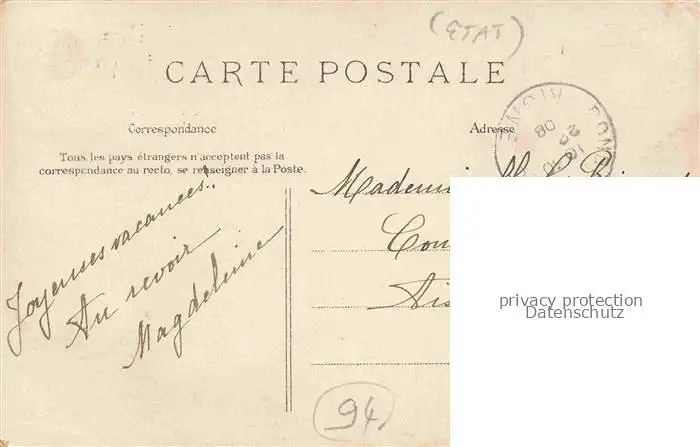 (ETAT)
CARTE POSTALE
Correspondance
Adresse
Tous les pays étrangers n'acceptent pas la
correspondance au recto, se renseigner à la Poste.
Joyeuses vacances!
Au revoir
Magdeleine
Mademoi
Cou
Ais
privacy protection
Datenschutz
94